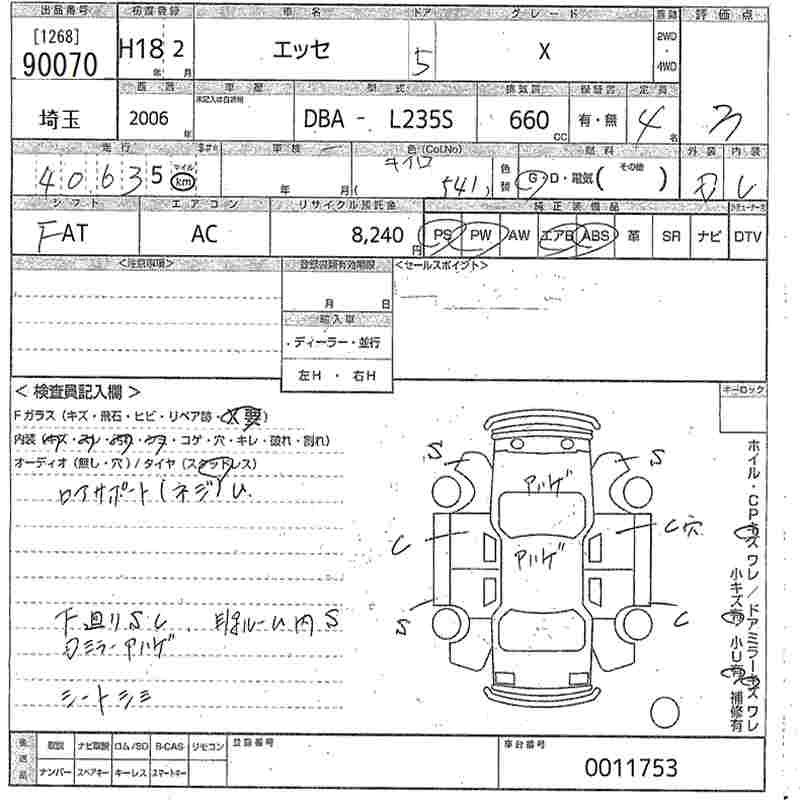 出品番号 初度登録 車名 ドア グレード 駆動 評価点
[1268]
90070 H18年 2月 エッセ 5 X 2WD・4WD 3
埼玉 2006年 未記入は自家用 型式 排気量 定員
DBA - L235S 660cc 有・無 4名
走行 車検 色(Col.No) 燃料 外装 内装
40,635 マイル km 年 月 キイロ (541) 色替 G・D・電気( その他 )
シフト エアコン リサイクル預託金 純正装備品
FAT AC 8,240円 PS PW AW エアB ABS 革 SR ナビ DTV
<注意事項> 登録書類有効期限 <セールスポイント>
月 日
輸入車
ディーラー・並行
左H ・ 右H
< 検査員記入欄 > キーロック
Fガラス(キズ・飛石・ヒビ・リペア跡・X要)
内装(キズ・スレ・汚れ・シミ・コゲ・穴・キレ・破れ・割れ)
オーディオ(無し・穴)/タイヤ(スタッドレス)
ロアサポート(ネジ)U
下廻りSU
ドミラーアハゲ
シートシミ
S S
アハゲ
C アハゲ C穴
S C
ホイル・CPキズ ワレ/ドアミラーキズ ワレ
小キズ有 小U有 補修有
後送品 取説 ナビ取説 ロム/SD B-CAS リモコン 登録番号 車台番号
ナンバー スペアキー キーレス スマートキー 0011753